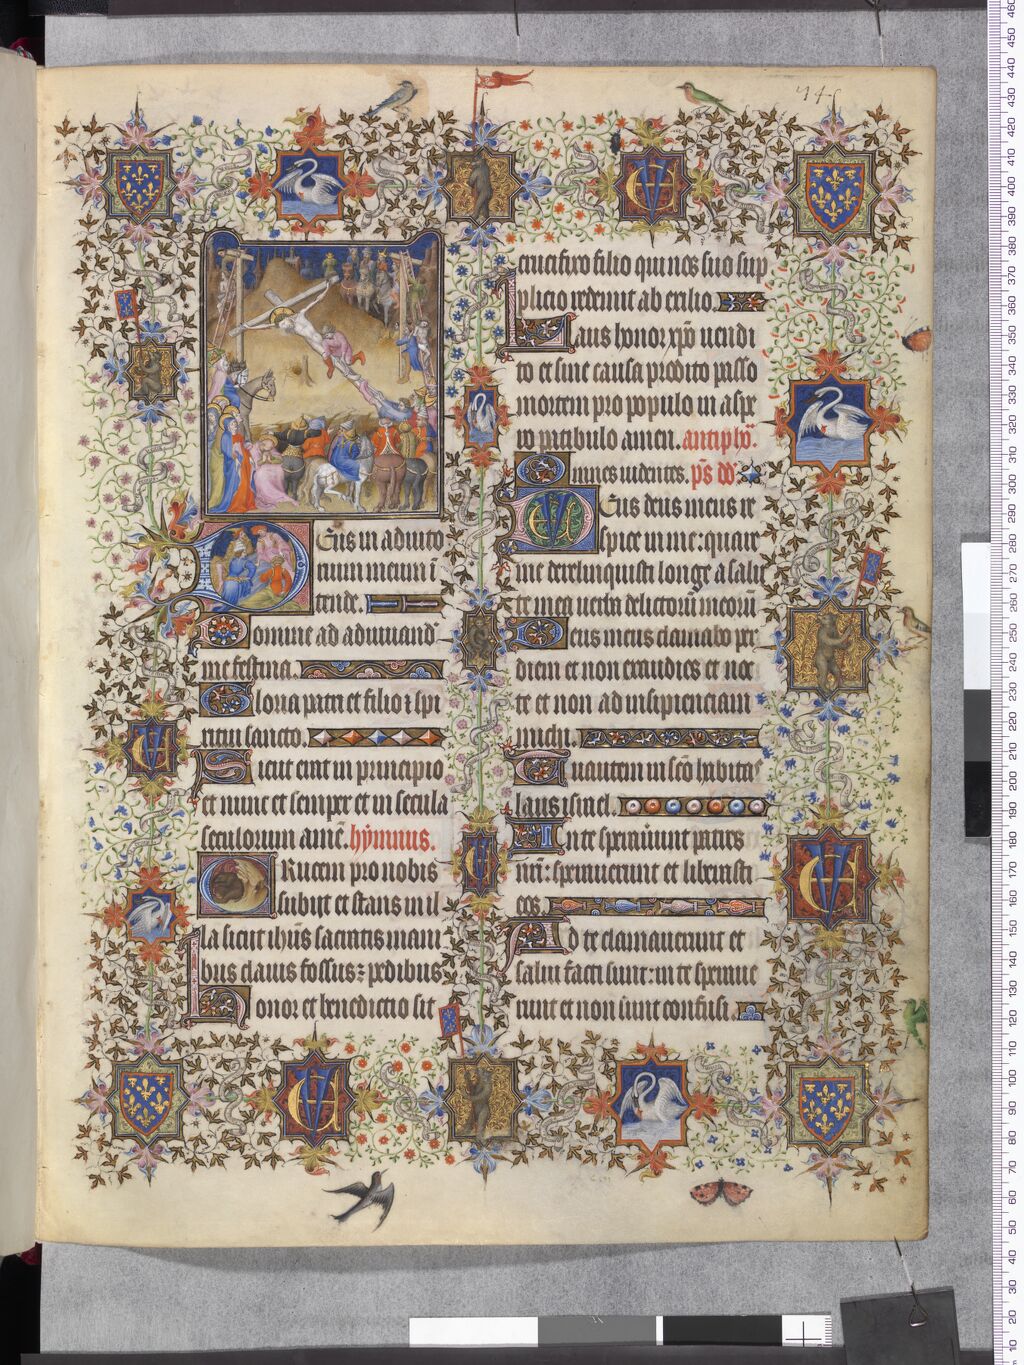 74
Eus in adiuto
rium meum ī
tende.
Domine ad adiuuand'
me festina.
Gloria patri et filio ⁊ spi
ritui sancto.
Sicut erat in principio
et nunc et semper et in secula
seculorum amē. hymnus.
CRucem pro nobis
subijt et stans in il
la siciit ihūs sacratis mani
bus clauis fossus ⁊ pedibus
Honor et benedictio sit
crucifixo filio qui nos suo sup
plicio redemit ab exilio.
Laus honor xp̄o uendi
to et sine causa prodito passo
mortem pro populo in aspe
ro patibulo amen. antiphō.
Omnes uidentes. p̄s dd'.
DEus deus meus re
spice in me: quare
me dereliquisti longe a salu
te mea uerba delictorū meorū
Deus meus clamabo per
diem et non exaudies et noc
te et non ad insipienciam
michi.
Tu autem in scō habitas
laus israel.
In te sperauerunt patres
nrī: sperauerunt et liberasti
eos.
Ad te clamauerunt et
salui facti sunt: in te speraue
runt et non sunt confusi.